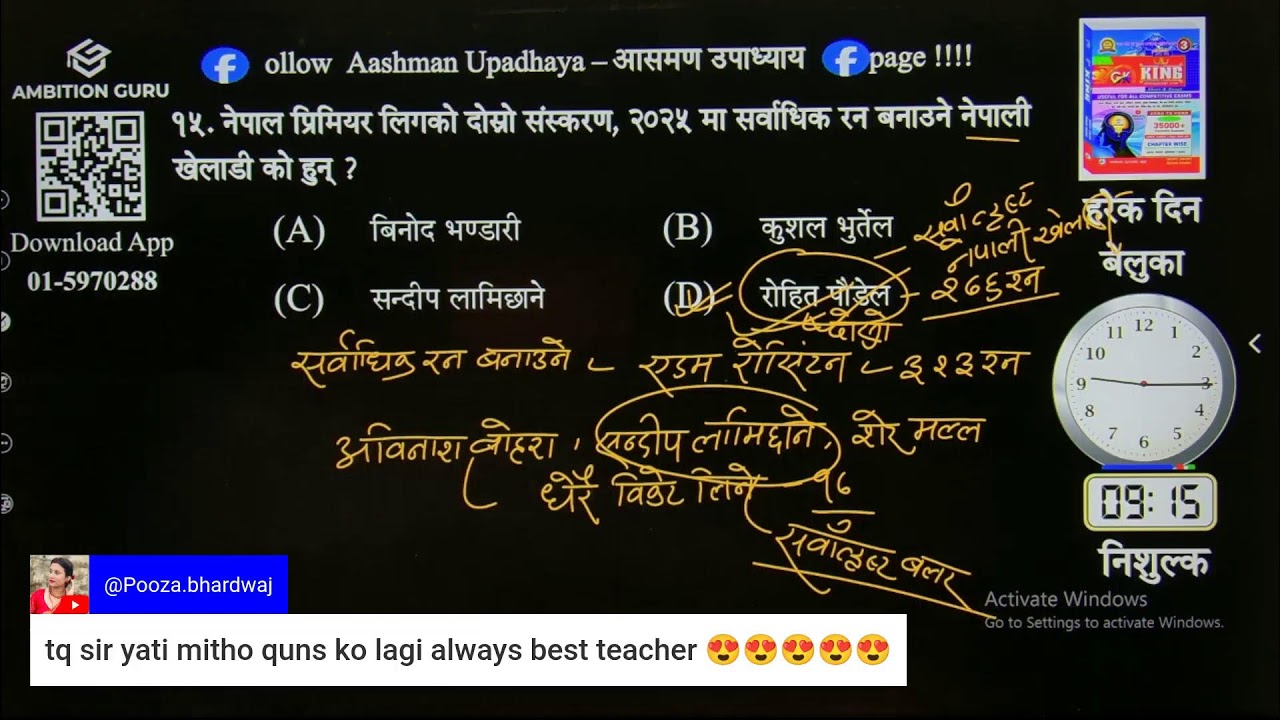 ollow Aashman Upadhaya – आसमण उपाध्याय page !!!!
AMBITION GURU
१५. नेपाल प्रिमियर लिगको दोस्रो संस्करण, २०२५ मा सर्वाधिक रन बनाउने नेपाली
खेलाडी को हुन् ?
(A) बिनोद भण्डारी
(B) कुशल भुर्तेल
(C) सन्दीप लामिछाने
(D) रोहित पौडेल
Download App
01-5970288
सर्वोत्कृष्ट
नेपाली खेलाडी
२७६ रन
सर्वाधिक रन बनाउने – एडम रोसिंटन – ३२३ रन
अविनाश बोहरा, सन्दीप लामिछाने, शेर मल्ल
धेरै विकेट लिने १७
सर्वोत्कृष्ट बलर
3
GK KING
USEFUL FOR ALL COMPETITIVE EXAMS
35000+
CHAPTER WISE
हरेक दिन
बेलुका
12
1
2
3
4
5
6
7
8
9
10
11
09:15
निशुल्क
Activate Windows
Go to Settings to activate Windows.
@Pooza.bhardwaj
tq sir yati mitho quns ko lagi always best teacher 😍😍😍😍😍